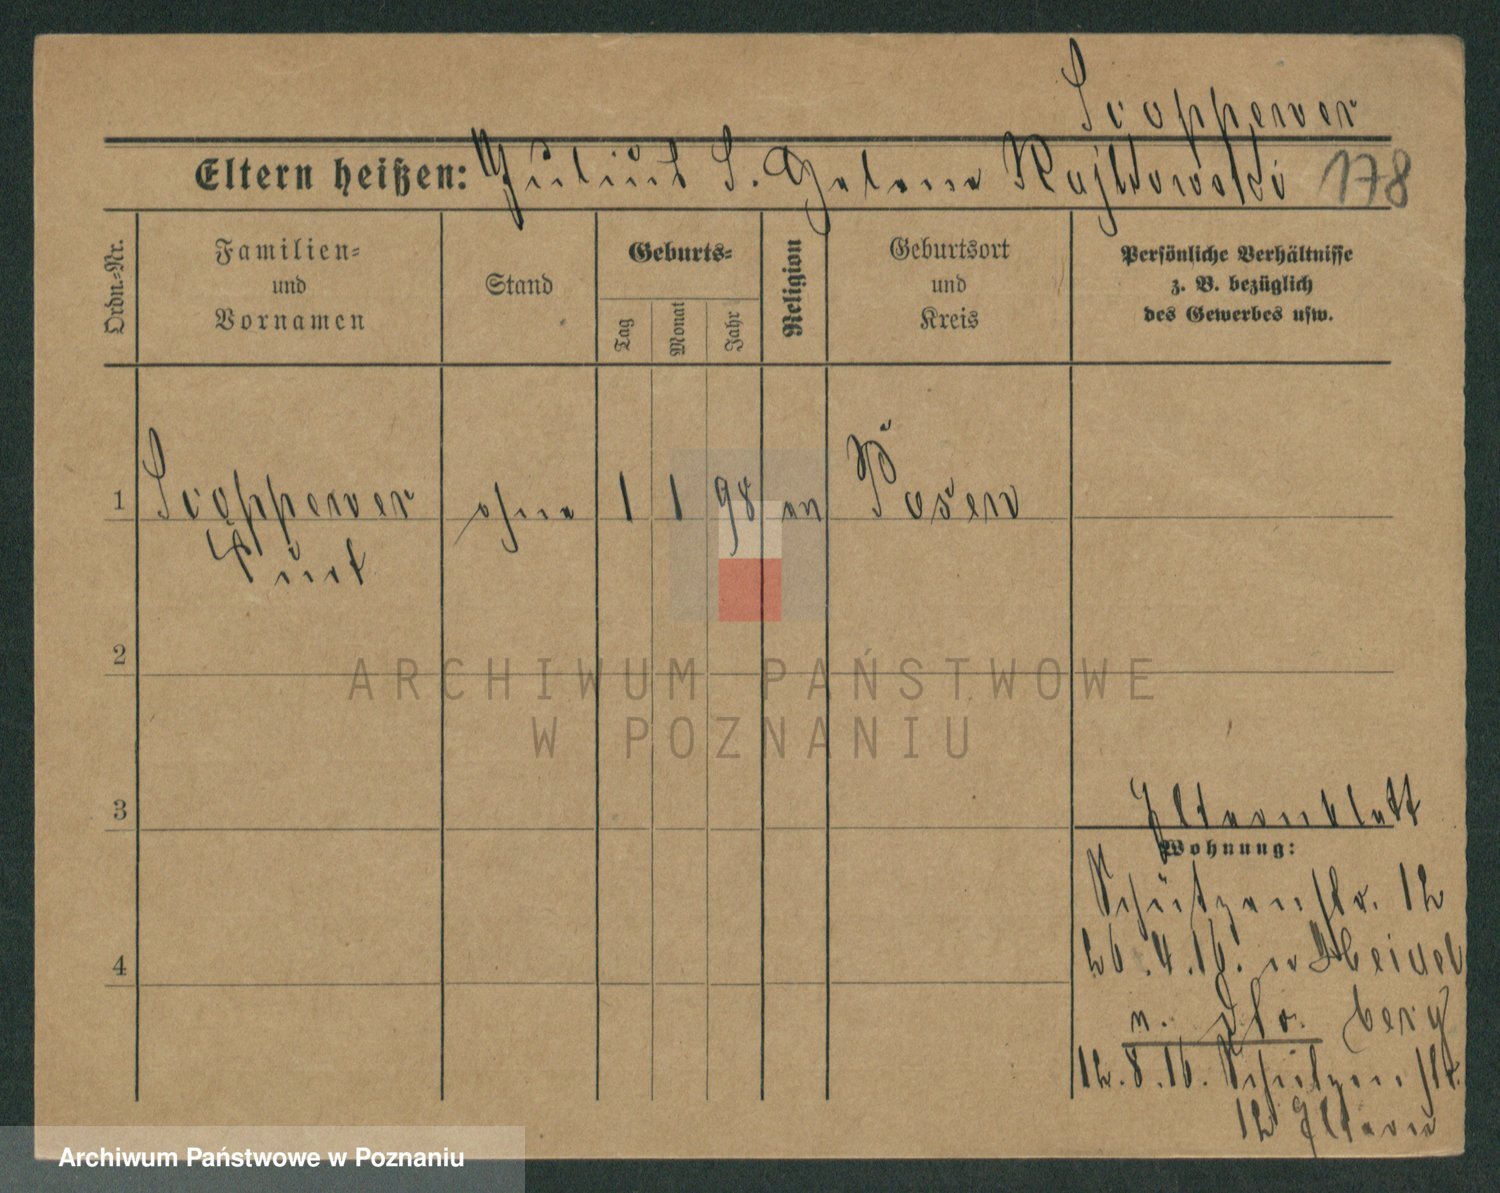 Eltern heißen: Julius S. Helene 178
Ordn.-Nr.
Familien-
und
Vornamen
Stand
Geburts-
Tag
Monat
Jahr
Religion
Geburtsort
und
Kreis
Persönliche Verhältnisse
z. B. bezüglich
des Gewerbes usw.
1 ohne 1 1 98 Posen
Kurt
2
ARCHIWUM PAŃSTWOWE
W POZNANIU
3 Elternblatt
Wohnung:
Schützenstr. 12
4 26.4.16. n.
berg
12.8.16. Schützenstr.
12 Eltern
Archiwum Państwowe w Poznaniu